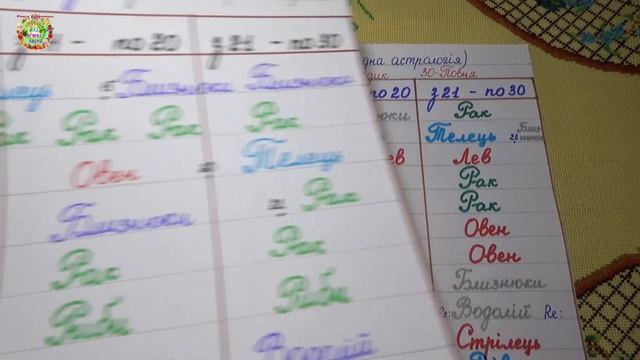 - по 20 з 21 - по 30
Близнюки Близнюки
Рак Рак Рак
Овен Телець
Близнюки Рак
Рак Рак
Риби Риби
Водолій
дна астрологія)
30-Повня
по 20 з 21 - по 30
Рак
Телець 28 Близнюки
Лев
Рак
Рак
Овен
Овен
Близнюки
Водолій Re:
Стрілець